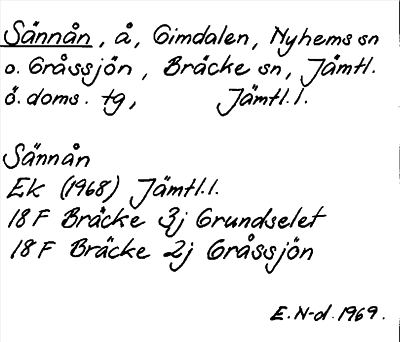 Sännån, å, Gimdalen, Nyhems sn
o. Gråssjön, Bräcke sn, Jämtl.
ö. doms. tg, Jämtl.l.
Sännån
Ek (1968) Jämtl.l.
18 F Bräcke 3j Grundselet
18 F Bräcke 2j Gråssjön
E. N-d. 1969.